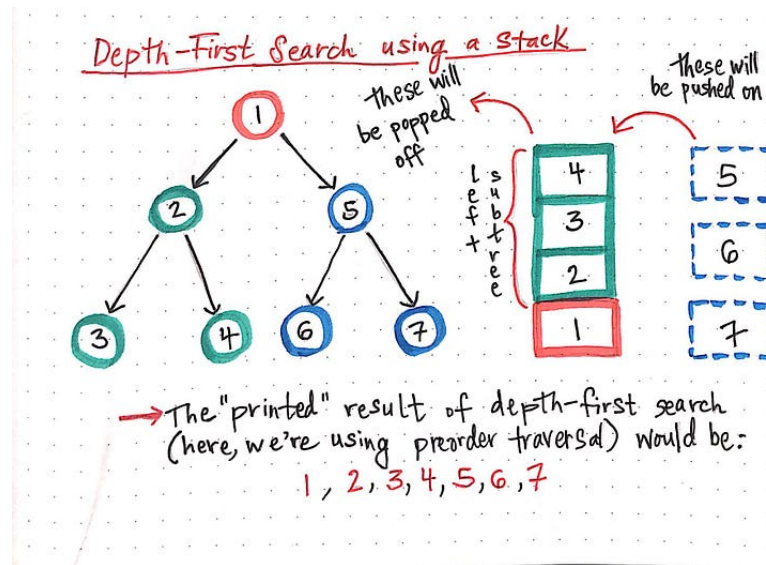 Depth-First Search using a stack
these will
be popped
off
these will
be pushed on
1
2
5
3
4
6
7
left
subtree
4
3
2
1
5
6
7
→ The "printed" result of depth-first search
(here, we're using preorder traversal) would be:
1, 2, 3, 4, 5, 6, 7